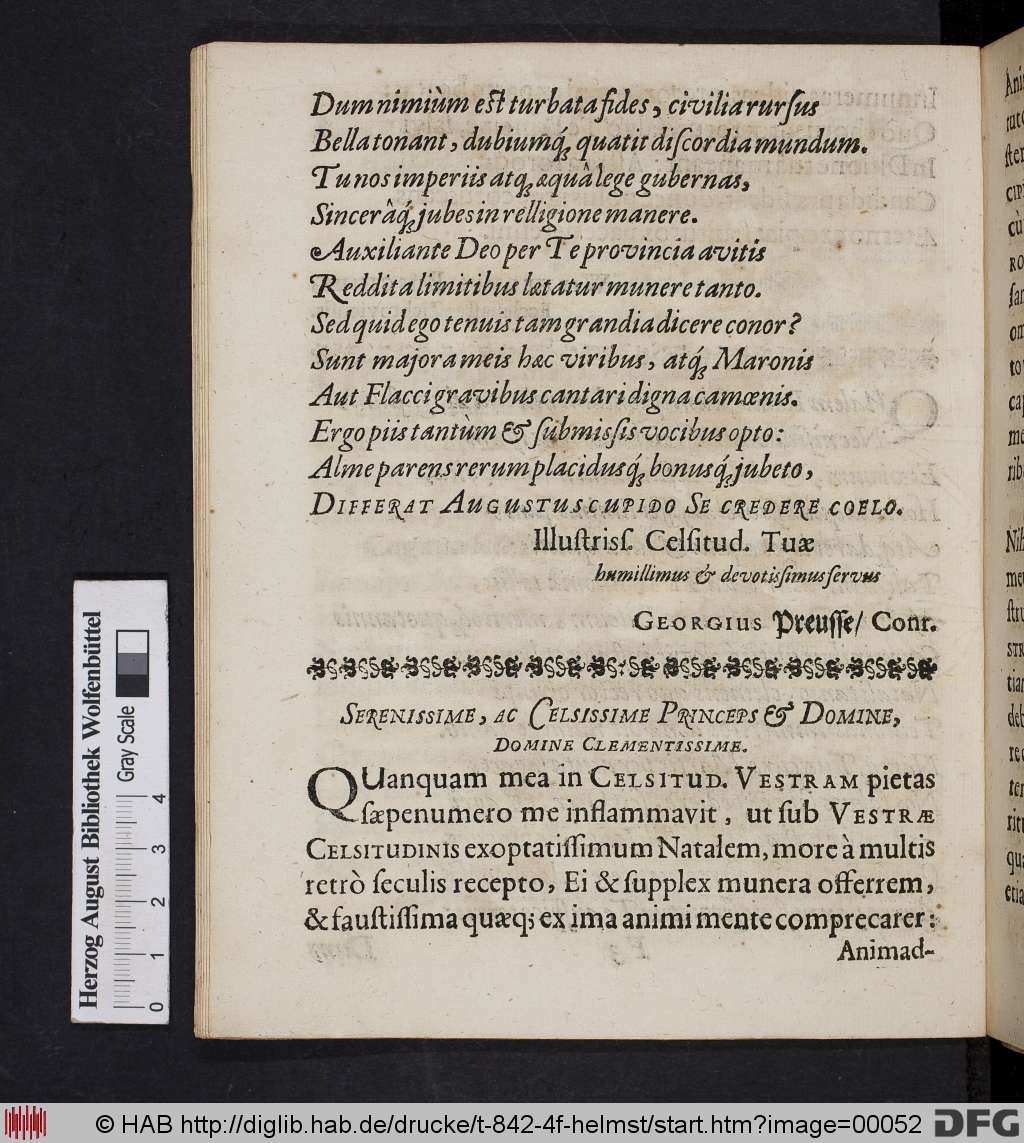 Dum nimiùm est turbata fides, civilia rursus
Bella tonant, dubiumq́; quatit discordia mundum.
Tu nos imperiis atq; æquâ lege gubernas,
Sincerâq́; jubes in relligione manere.
Auxiliante Deo per Te provincia avitis
Reddita limitibus lætatur munere tanto.
Sed quid ego tenuis tam grandia dicere conor?
Sunt majora meis hæc viribus, atq́; Maronis
Aut Flacci gravibus cantari digna camœnis.
Ergo piis tantùm & submissis vocibus opto:
Alme parens rerum placidusq́; bonusq́; jubeto,
DIFFERAT AUGUSTUS CUPIDO SE CREDERE COELO.
Illustriss. Celsitud. Tuæ
humillimus & devotissimus servus
GEORGIUS Preusse/ Conr.
SERENISSIME, AC CELSISSIME PRINCEPS & DOMINE,
DOMINE CLEMENTISSIME.
QUanquam mea in CELSITUD. VESTRAM pietas
sæpenumero me inflammavit, ut sub VESTRÆ
CELSITUDINIS exoptatissimum Natalem, more à multis
retrò seculis recepto, Ei & supplex munera offerrem,
& faustissima quæq; ex ima animi mente comprecarer:
Animad-
Herzog August Bibliothek Wolfenbüttel
Gray Scale
0 1 2 3 4
© HAB http://diglib.hab.de/drucke/t-842-4f-helmst/start.htm?image=00052
DFG